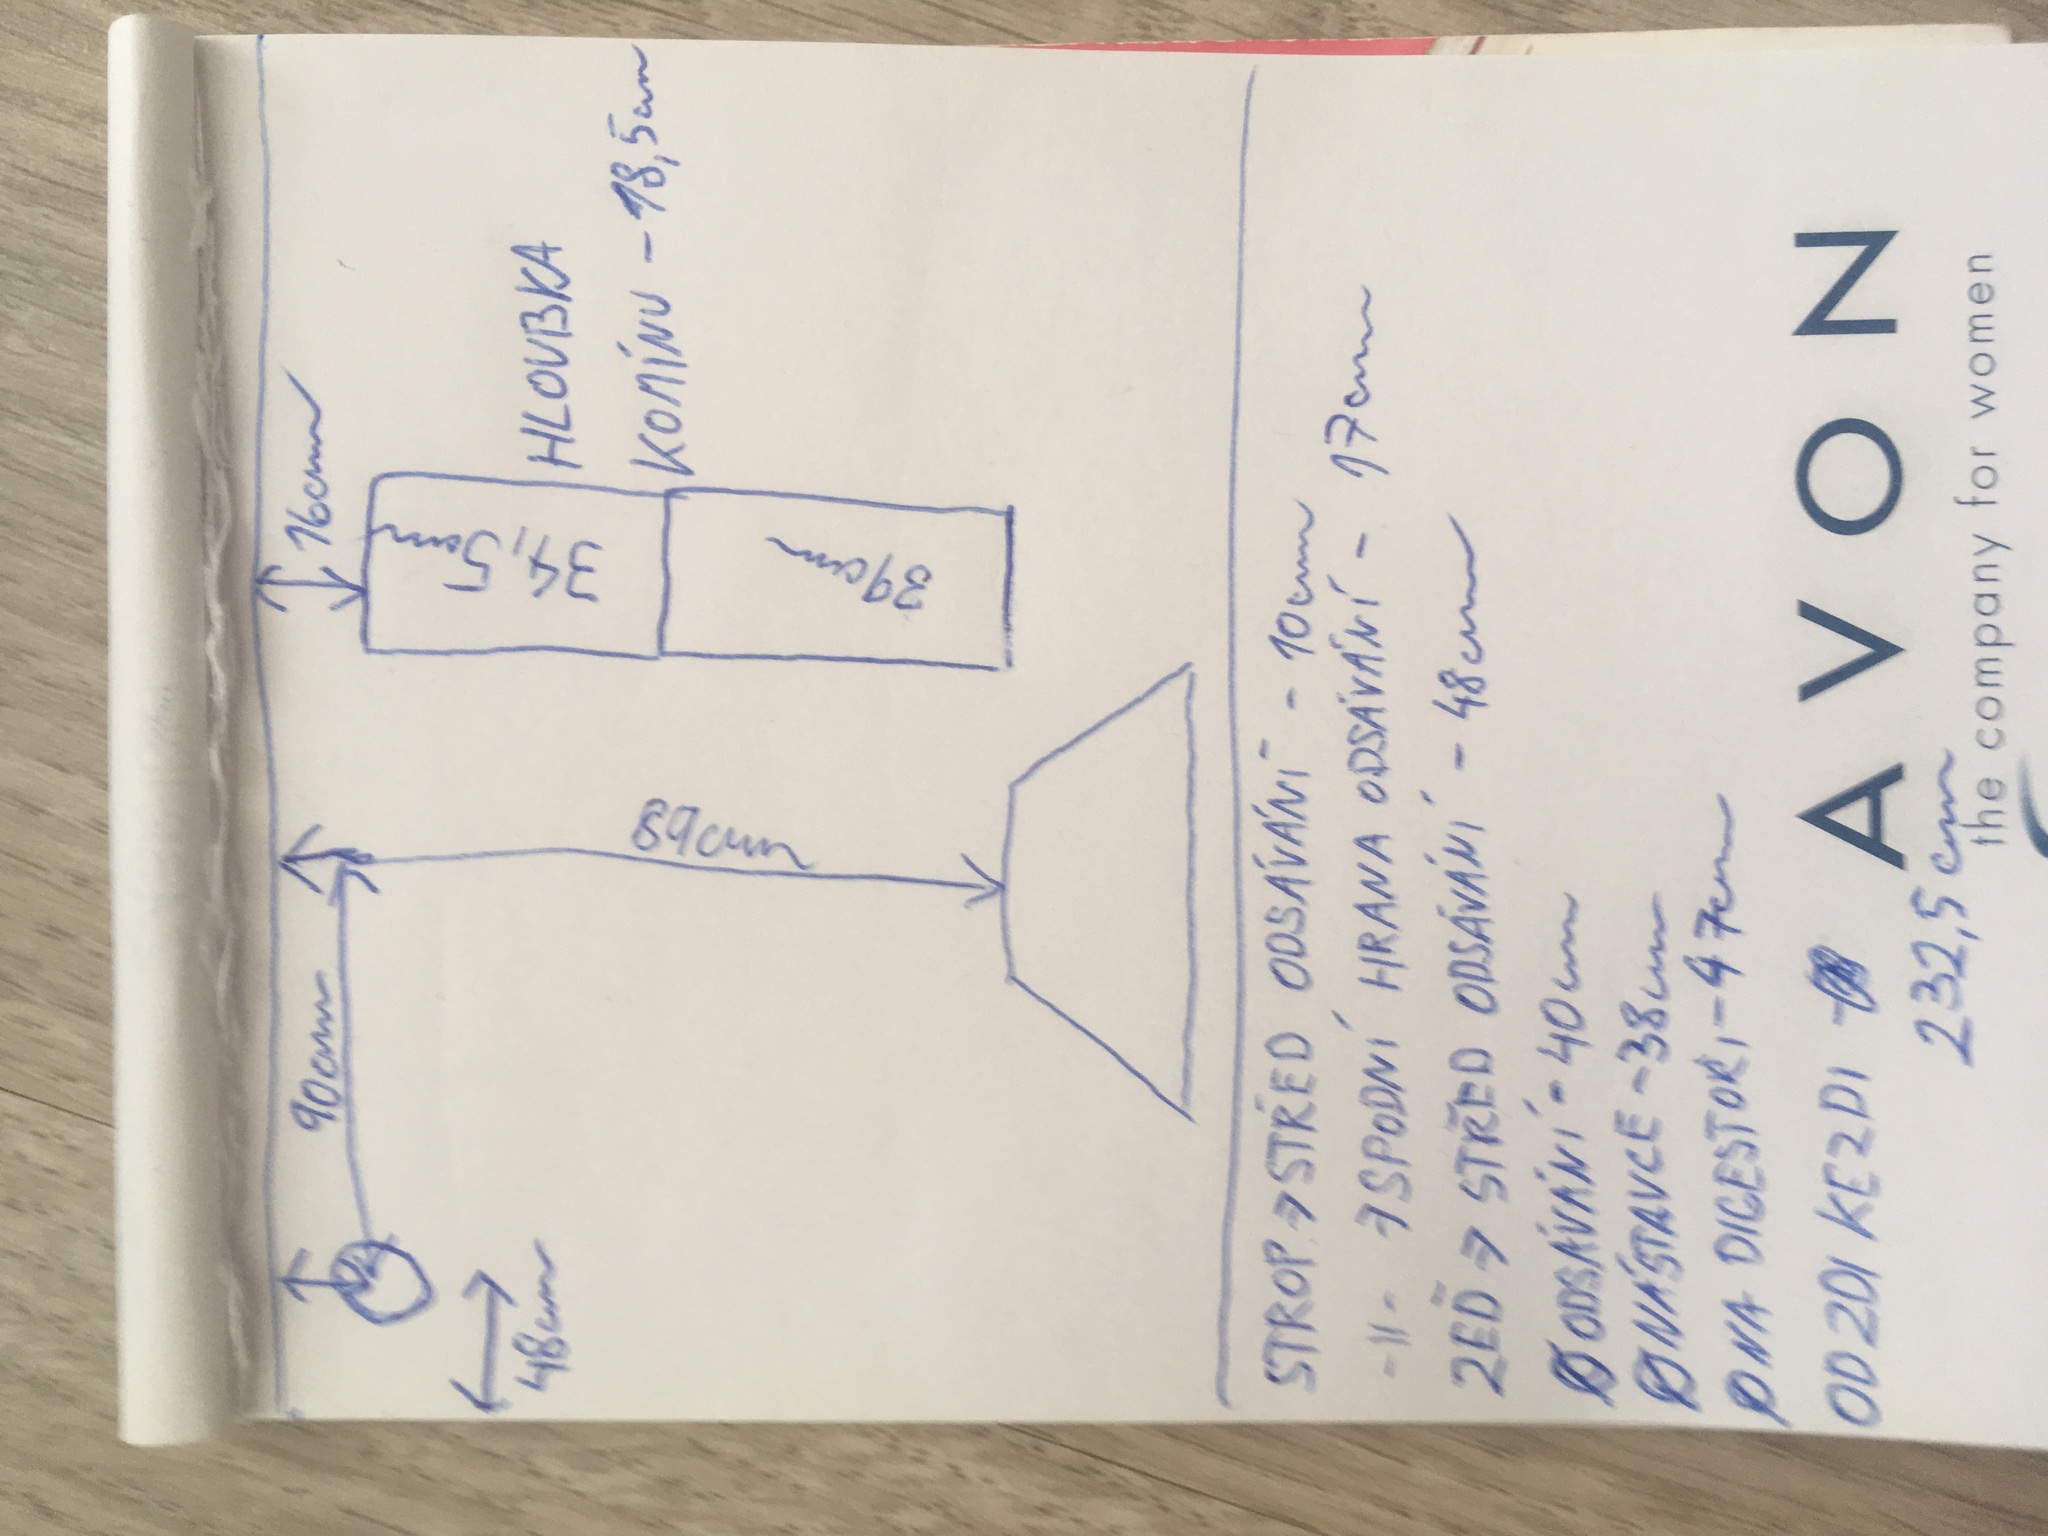 90cm
16cm
48cm
89cm
34,5cm
39cm
HLOUBKA
KOMÍNU - 18,5cm
STROP → STŘED ODSÁVÁNÍ - 10cm
-11- → SPODNÍ HRANA ODSÁVÁNÍ - 17cm
ZEĎ → STŘED ODSÁVÁNÍ - 48cm
Ø ODSÁVÁNÍ - 40cm
Ø NÁSTAVCE - 38cm
Ø NA DIGESTOŘI - 47cm
OD ZDI KE ZDI
232,5cm
AVON
the company for women